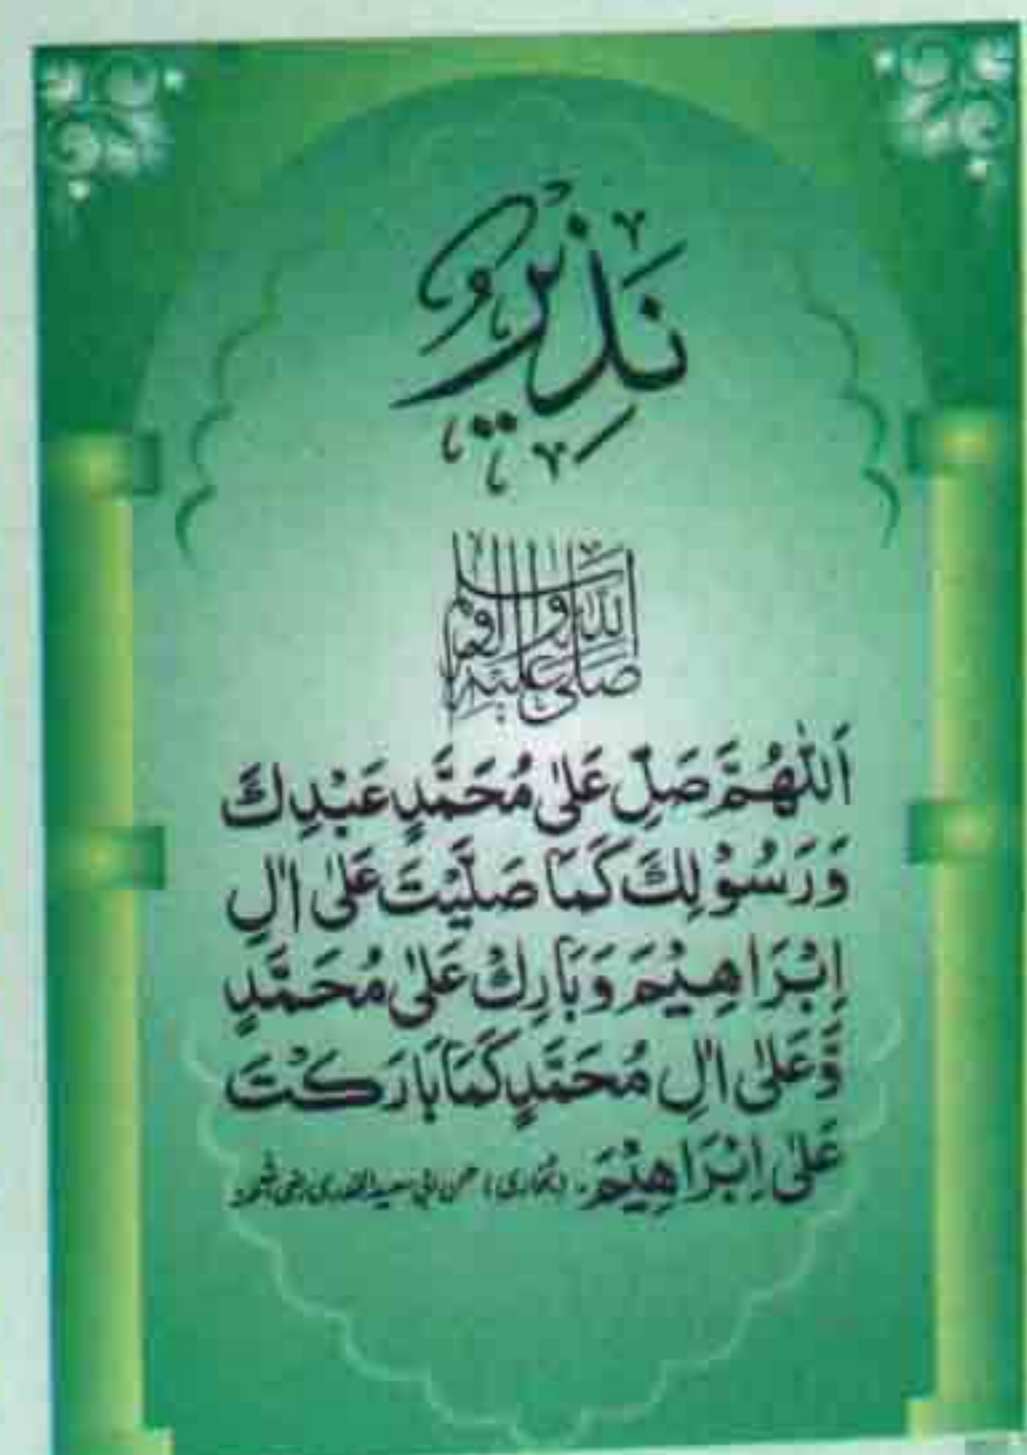 نَذِيْرٌ
صَلَّى اللّٰهُ عَلَيْهِ وَاٰلِهٖ وَسَلَّم
اَللّٰهُمَّ صَلِّ عَلٰى مُحَمَّدٍ عَبْدِكَ
وَرَسُوْلِكَ كَمَا صَلَّيْتَ عَلٰى اٰلِ
اِبْرَاهِيْمَ وَبَارِكْ عَلٰى مُحَمَّدٍ
وَّعَلٰى اٰلِ مُحَمَّدٍ كَمَا بَارَكْتَ
عَلٰى اِبْرَاهِيْمَ۔ (بخاری) عن ابی سعید الخدری رضی